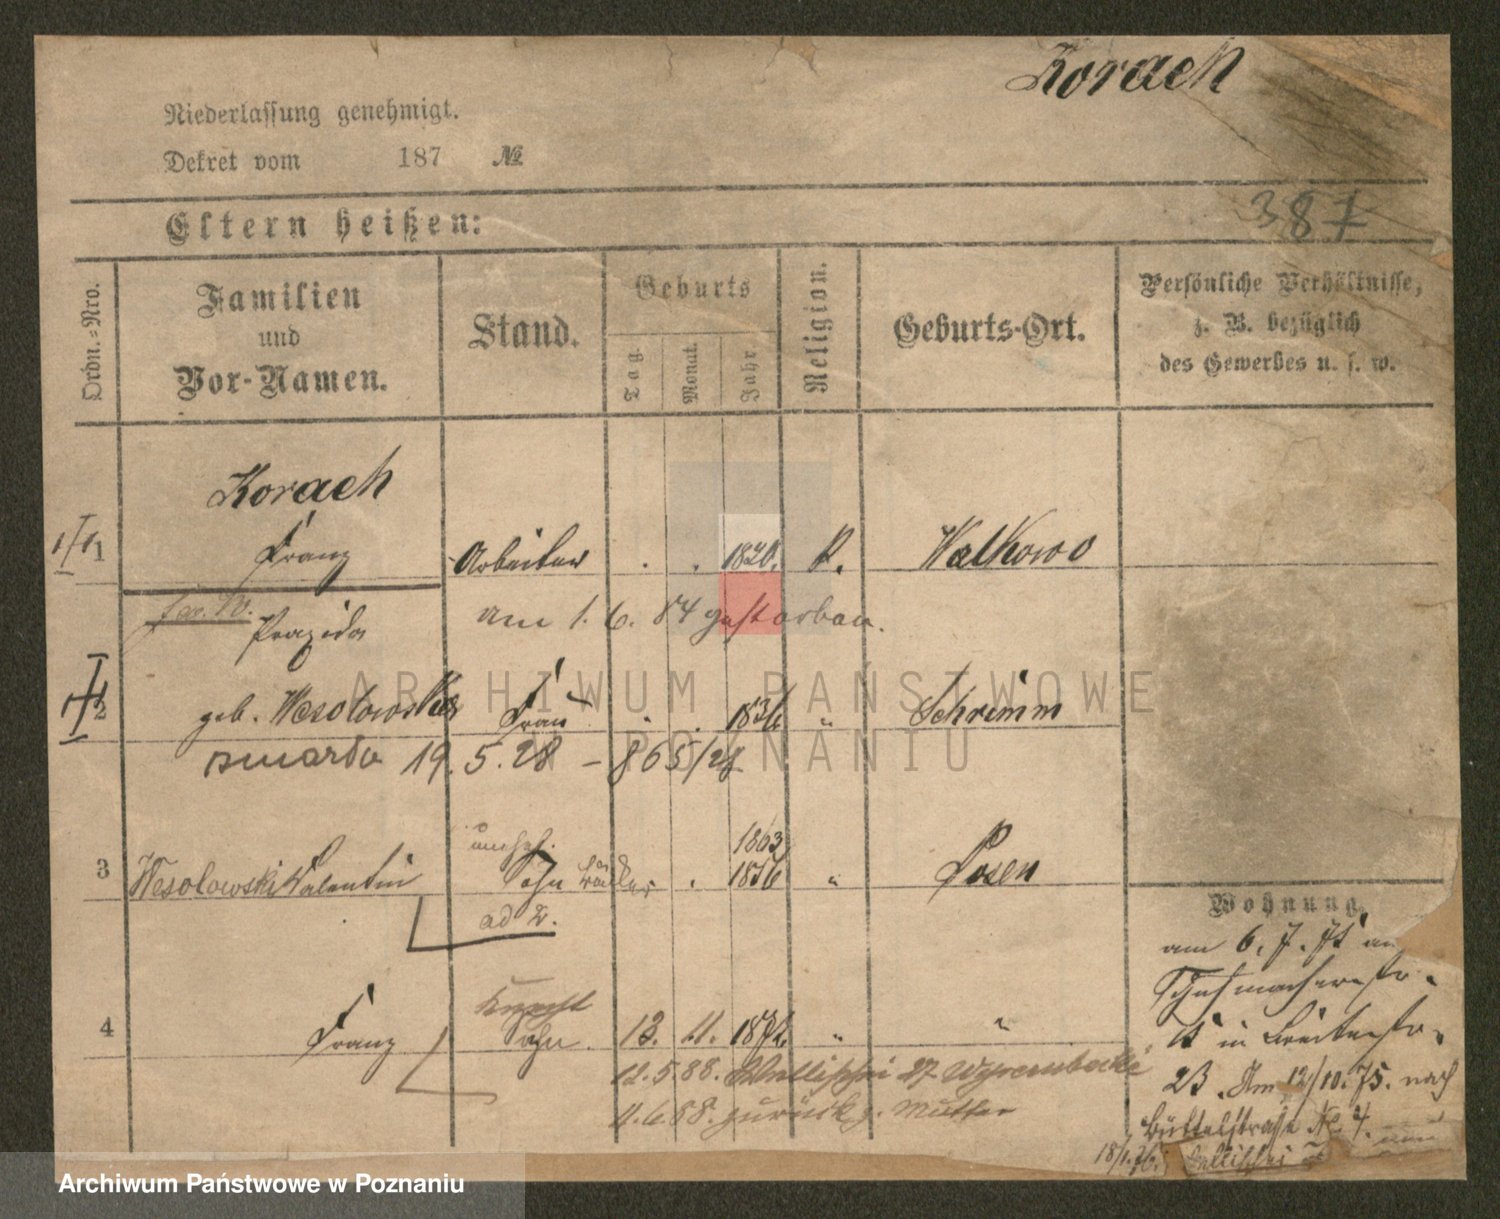 Korach
Niederlassung genehmigt.
Dekret vom 187 №
387
Eltern heißen:
Ordn.=Nro.
Familien
und
Vor-Namen.
Stand.
Geburts
Tag.
Monat.
Jahr.
Religion.
Geburts-Ort.
Persönliche Verhältnisse,
z. B. bezüglich
des Gewerbes u. s. w.
Korach
1 Franz Arbeiter . . 1820. K. Walkowo
am 1. 6. 84 gestorben.
Praxida
2 geb. Wesolowska Frau . . 1836 " Schrimm
zmarła 19.5.28 – 865/28
unehel. 1863
3 Wesolowski Valentin Sohn . 1856 " Posen
ad 2.
Knecht
4 Franz Sohn. 12. 11. 1872. " "
12.5.88. Wallischei 27
11.6.88. zurück z. Mutter
Wohnung.
am 6. 7. 75 an
Schuhmacherstr.
in Breitestr.
23. Am 12/10. 75. nach
Büttelstraße No. 4.
18/1.76. Wallischei
ARCHIWUM PAŃSTWOWE
W POZNANIU
Archiwum Państwowe w Poznaniu